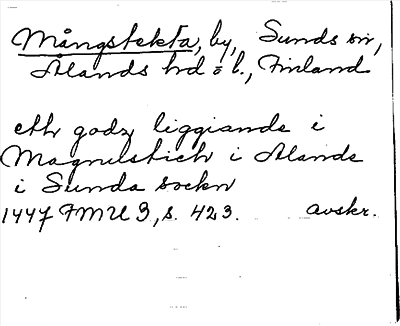 Mångstekta, by, Sunds sn,
Ålands hd o. l., Finland
eth godz liggiande i
Magnusstich i Alande
i Sunda sockn
1447 FMU 3, s. 423. avskr.